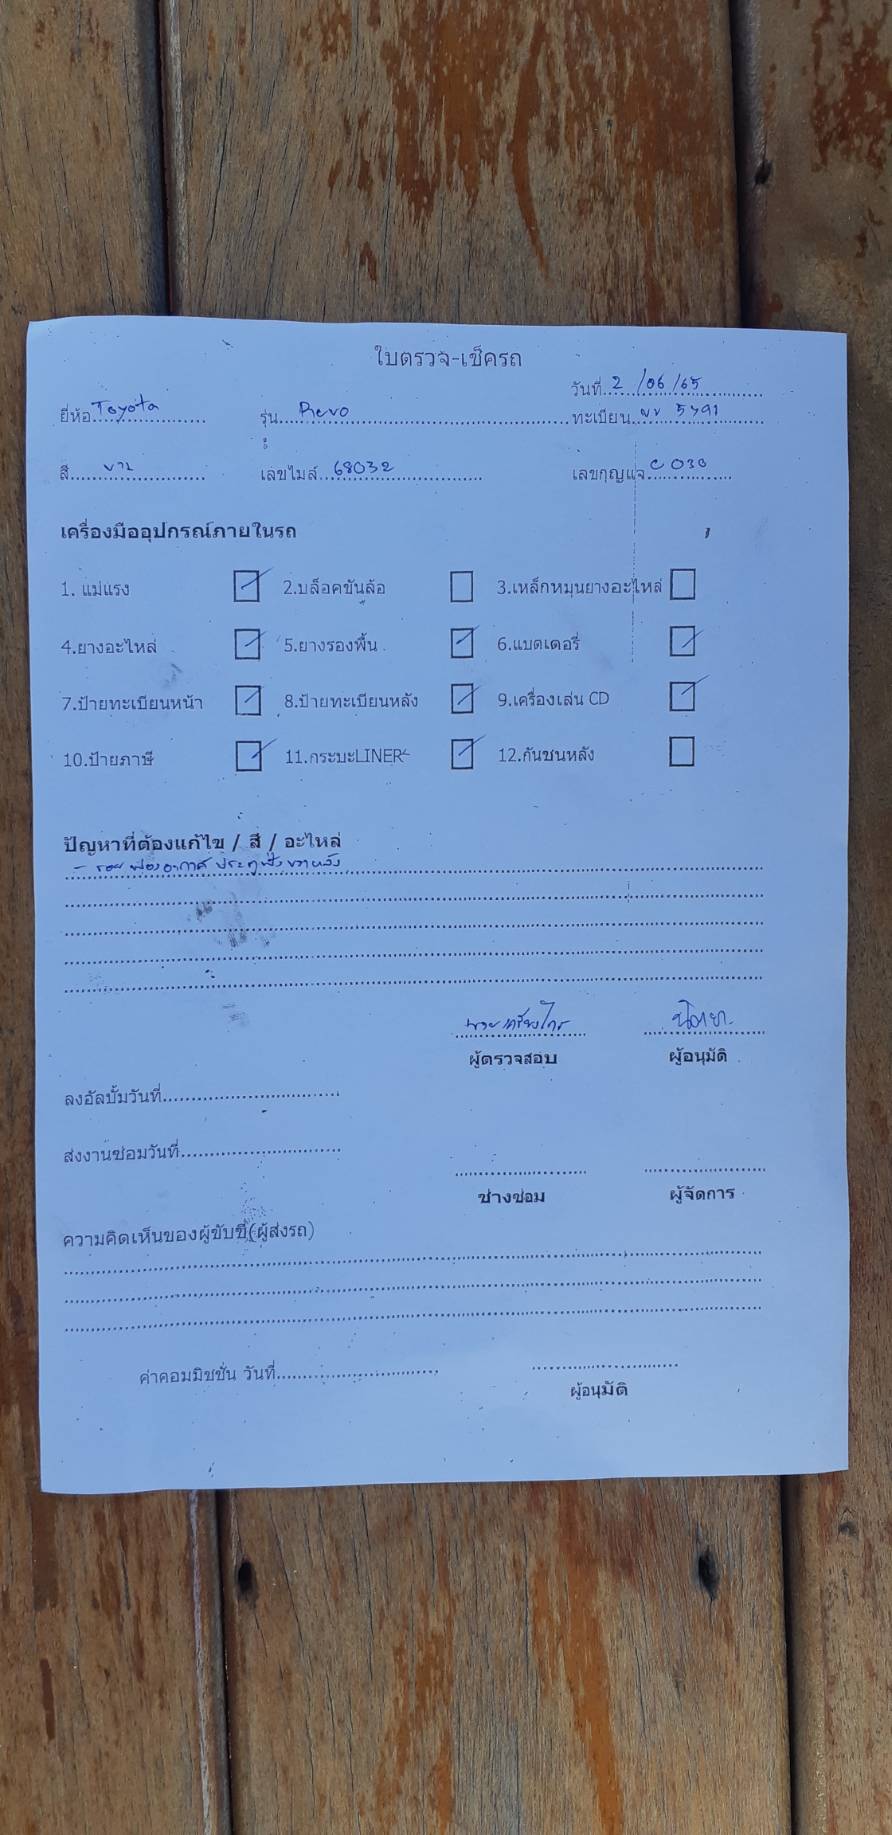 ใบตรวจ-เช็ครถ
วันที่ 2/06/65
ยี่ห้อ Toyota รุ่น Revo ทะเบียน 5791
สี ขาว เลขไมล์ 68032 เลขกุญแจ C030
เครื่องมืออุปกรณ์ภายในรถ
1. แม่แรง 2.บล็อคขันล้อ 3.เหล็กหมุนยางอะไหล่
4.ยางอะไหล่ 5.ยางรองพื้น 6.แบตเตอรี่
7.ป้ายทะเบียนหน้า 8.ป้ายทะเบียนหลัง 9.เครื่องเล่น CD
10.ป้ายภาษี 11.กระบะLINER 12.กันชนหลัง
ปัญหาที่ต้องแก้ไข / สี / อะไหล่
- รอย ฟองอากาศ ประตู ฝั่ง ขวาหลัง
นิตยา
ผู้ตรวจสอบ ผู้อนุมัติ
ลงอัลบั้มวันที่
ส่งงานซ่อมวันที่
ช่างซ่อม ผู้จัดการ
ความคิดเห็นของผู้ขับขี่(ผู้ส่งรถ)
ค่าคอมมิชชั่น วันที่
ผู้อนุมัติ